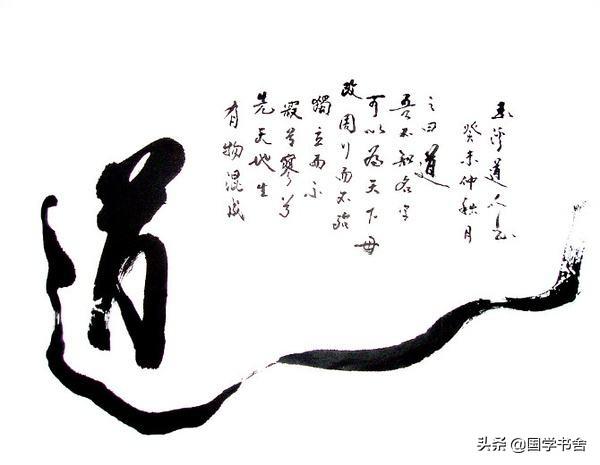 道
有物混成
先天地生
寂兮寥兮
獨立而不
改周行而不殆
可以為天下母
吾不知名字
之曰道
癸未仲秋月
道人
头条 @国学书舍